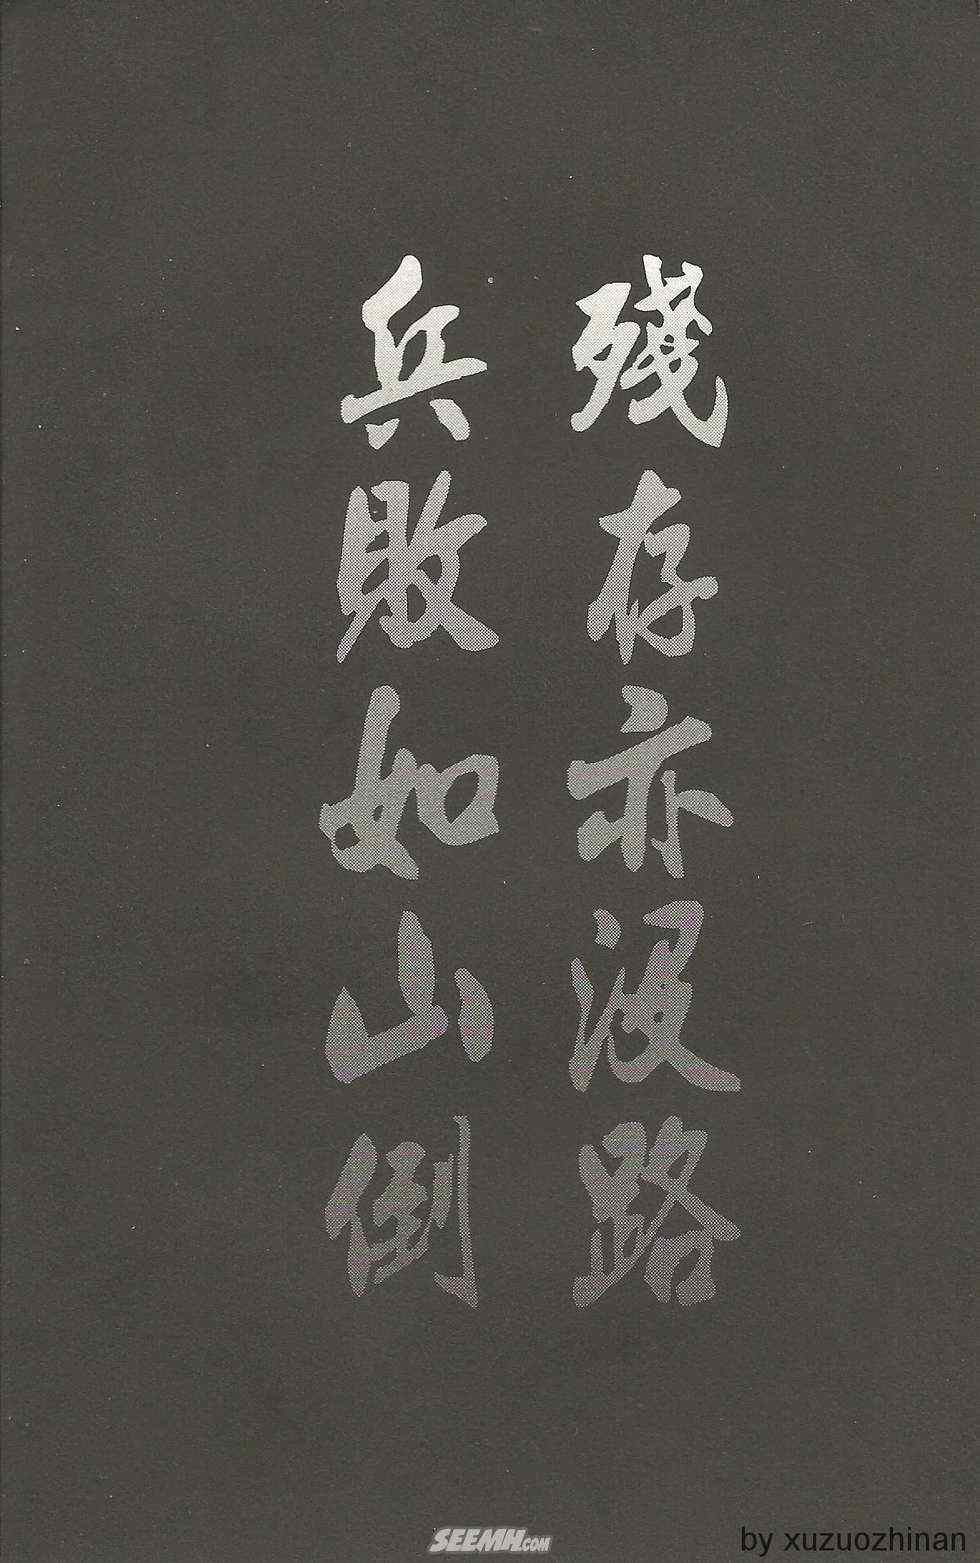 殘存亦沒路
兵敗如山倒
SEEMH.COM
by xuzuozhinan